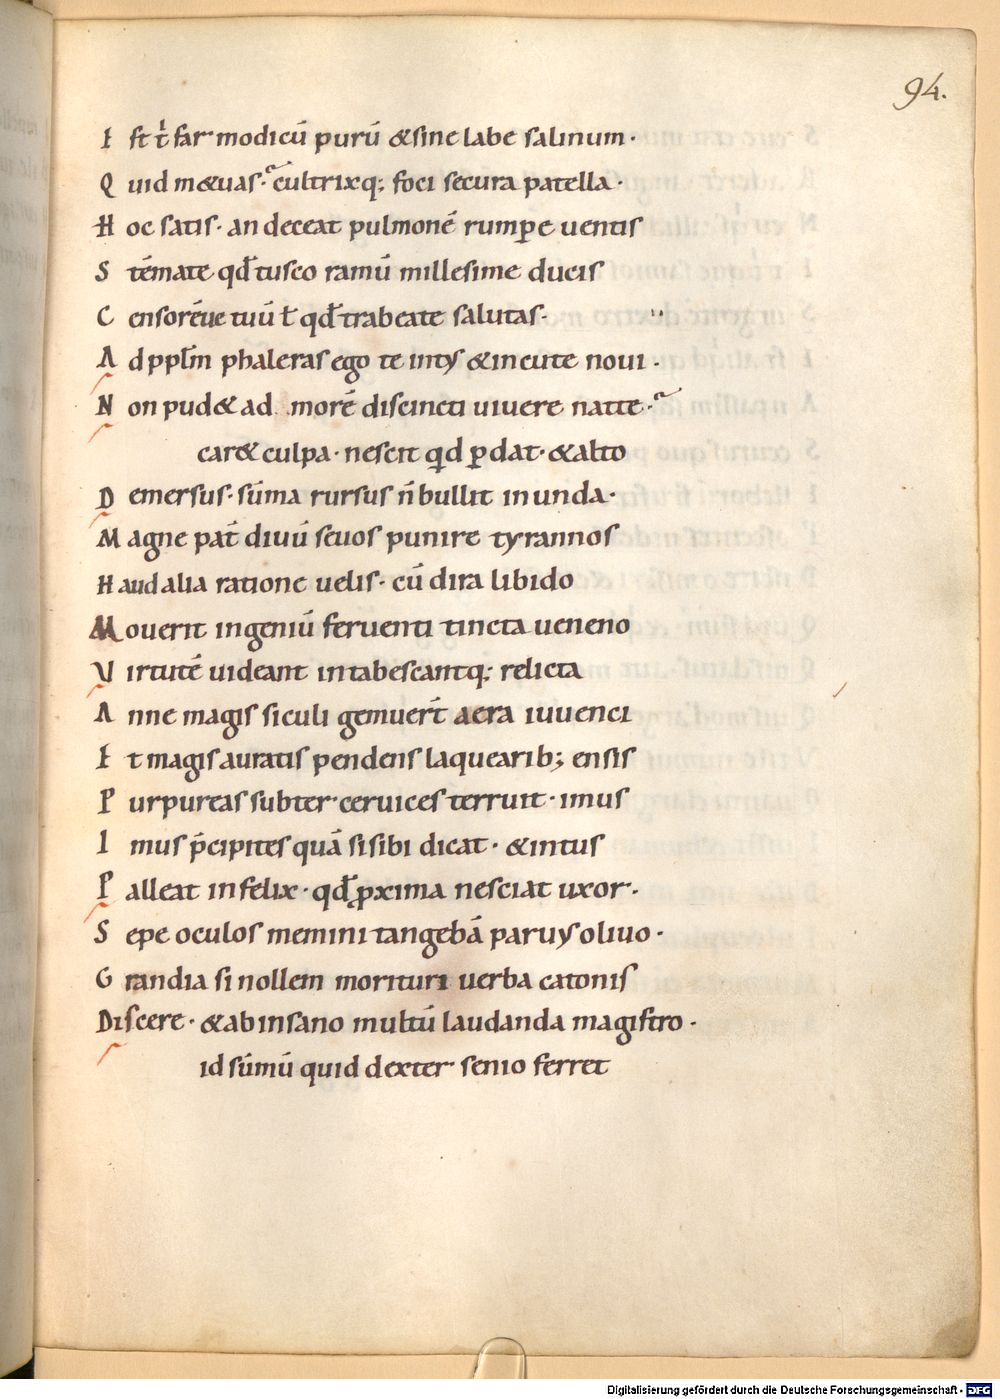 94.
E st t̄ far modicū purū &sine labe salinum·
Q uid m&uas· cultrixq; foci secura patella·
H oc satis· an deceat pulmonē rumpere uentis
S tēmate qđ tusco ramū millesime ducis
C ensorēue tuū ł qđ trabeate salutas·
A d ppl̄m phaleras ego te intꝰ &incute noui·
N on pud& ad morē discincti uiuere natte·
car& culpa· nescit qd ꝑdat· &alto
D emersus· sūma rursus n̄ bullit inunda·
M agne pat̄ diuū seuos punire tyrannos
H aud alia ratione uelis· cū dira libido
M ouerit ingeniū feruenti tincta ueneno
V irtutē uideant intabescantq; relicta
A nne magis siculi gemuer̄t aera iuuenci
E t magis auratis pendens laquearib; ensis
P urpureas subter ceruices terruit· imus
I mus p̄cipites quā si sibi dicat· &intus
P alleat infelix· qđ ꝓxima nesciat uxor·
S epe oculos memini tangebā paruꝰ oliuo·
G randia si nollem morituri uerba catonis
Discere· &ab insano multū laudanda magistro·
id sūmū quid dexter senio ferret
Digitalisierung gefördert durch die Deutsche Forschungsgemeinschaft - DFG